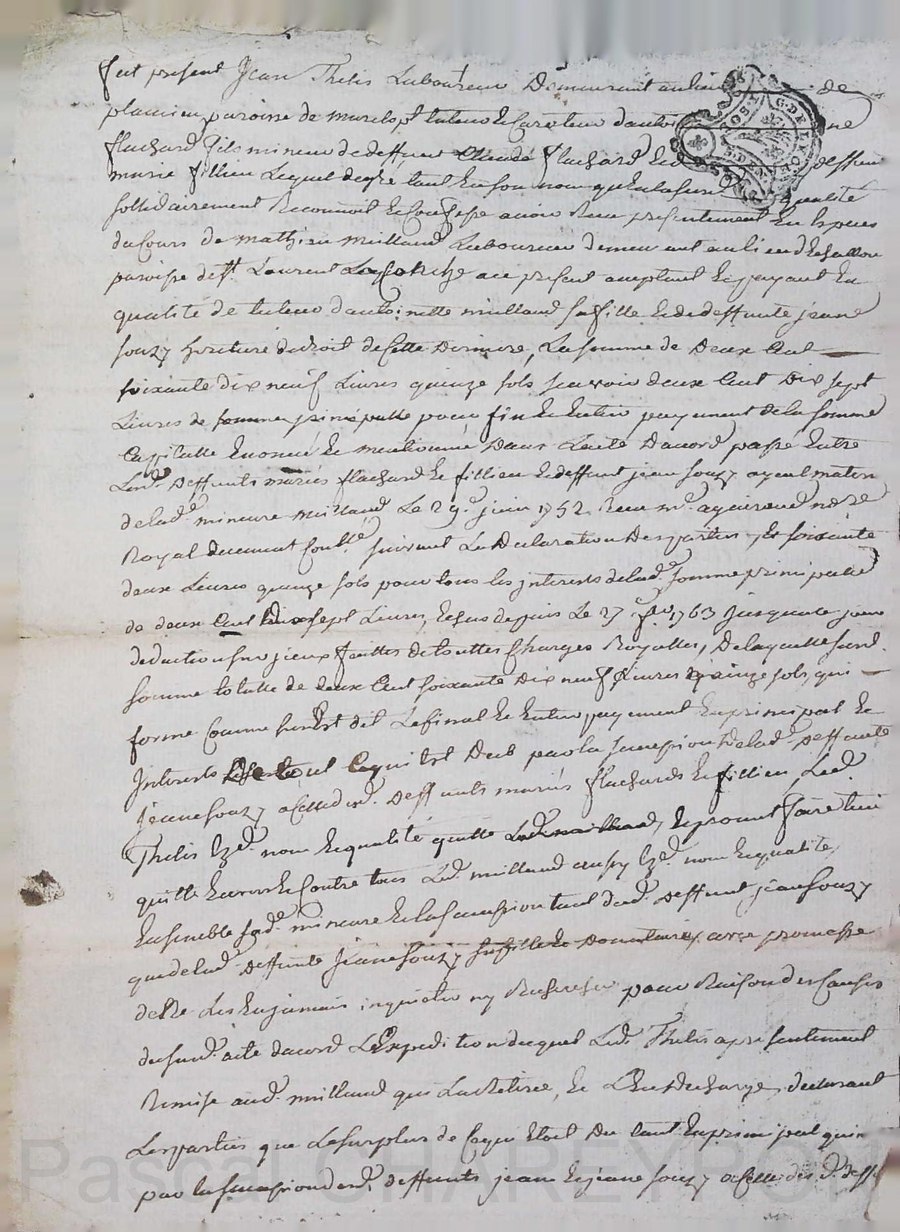 fut présent Jean Thelis Laboureur Demeurant au lieu de
plamien paroisse de tuteur Curateur ne
flachard fils mineur de deffunt Claude flachard Et deffunte
marie fillieu Lequel degré tant En son nom qu'En lad. surd. qualité
sollidairement Reconnoit Et Confesse avoir Reçu présentement En Espèces
du Cours de mathieu meilland Laboureur demeurant au lieu de
paroisse de st. Laurent La Conche ace présent acceptant Et payant En
qualité de tuteur d'anthoinette meilland sa fille Et de deffunte jeanne
souzy héritière de droit de Cette Dernière, La somme de Deux Cent
soixante dix neuf Livres quinze sols sçavoir deux Cent Dix sept
Livres de somme principalle pour fin Et Entier payement de la somme
Capitalle Enoncée Et mentionnée Dans L'acte D'accord passé Entre
Lesd. Deffunts mariés flachard Et fillieu Et deffunt jean souzy ayeul maternel
de lad. mineure meilland Le 29e. juin 1752 Reçu me. no.re
Royal duement Conllé. suivant La Déclaration Des parties, Et soixante
deux Livres quinze sols pour tous les jnterets de lad. somme principalle
de deux Cent dix sept Livres, Echus depuis Le 27 1763 jusqu'à ce jour
déduction sur jceux faittes de touttes Charges Royalles, De laquelle surd.
somme totalle de deux Cent soixante Dix neuf Livres quinze sols, qui
forme Comme sus Est dit Le final Et Entier payement En principal Et
jnterets De tout Ce qui Est Deub par la succession de lad. Deffunte
jeanne souzy a Celle desd. Deffunts mariés flachard Et fillieu, Led.
Thelis Ezd. nom Et qualité quitte Led. meilland, Et promet faire tenir
quitte Envers Et Contre tous Led. meilland aussy Ezd. nom Et qualité,
Ensemble sad. mineure Et la succession tant dud. Deffunt jean souzy
que de lad. Deffunte jeanne souzy sa fille Et Donataire, avec promesse
de ne Les En jamais inquietter ny Rechercher pour Raison des Causes
du surd. acte d'accord L'Expedition duquel Led. Thelis a présentement
Remise aud. meilland qui L'a Retirée, Et L'En décharge, déclarant
Les parties que Le surplus de Ce qui Etoit Du tant En principal qu'in
par la succession desd. deffunts jean Et jeanne souzy a Celle des d. deff
Pascal CHAREYRON